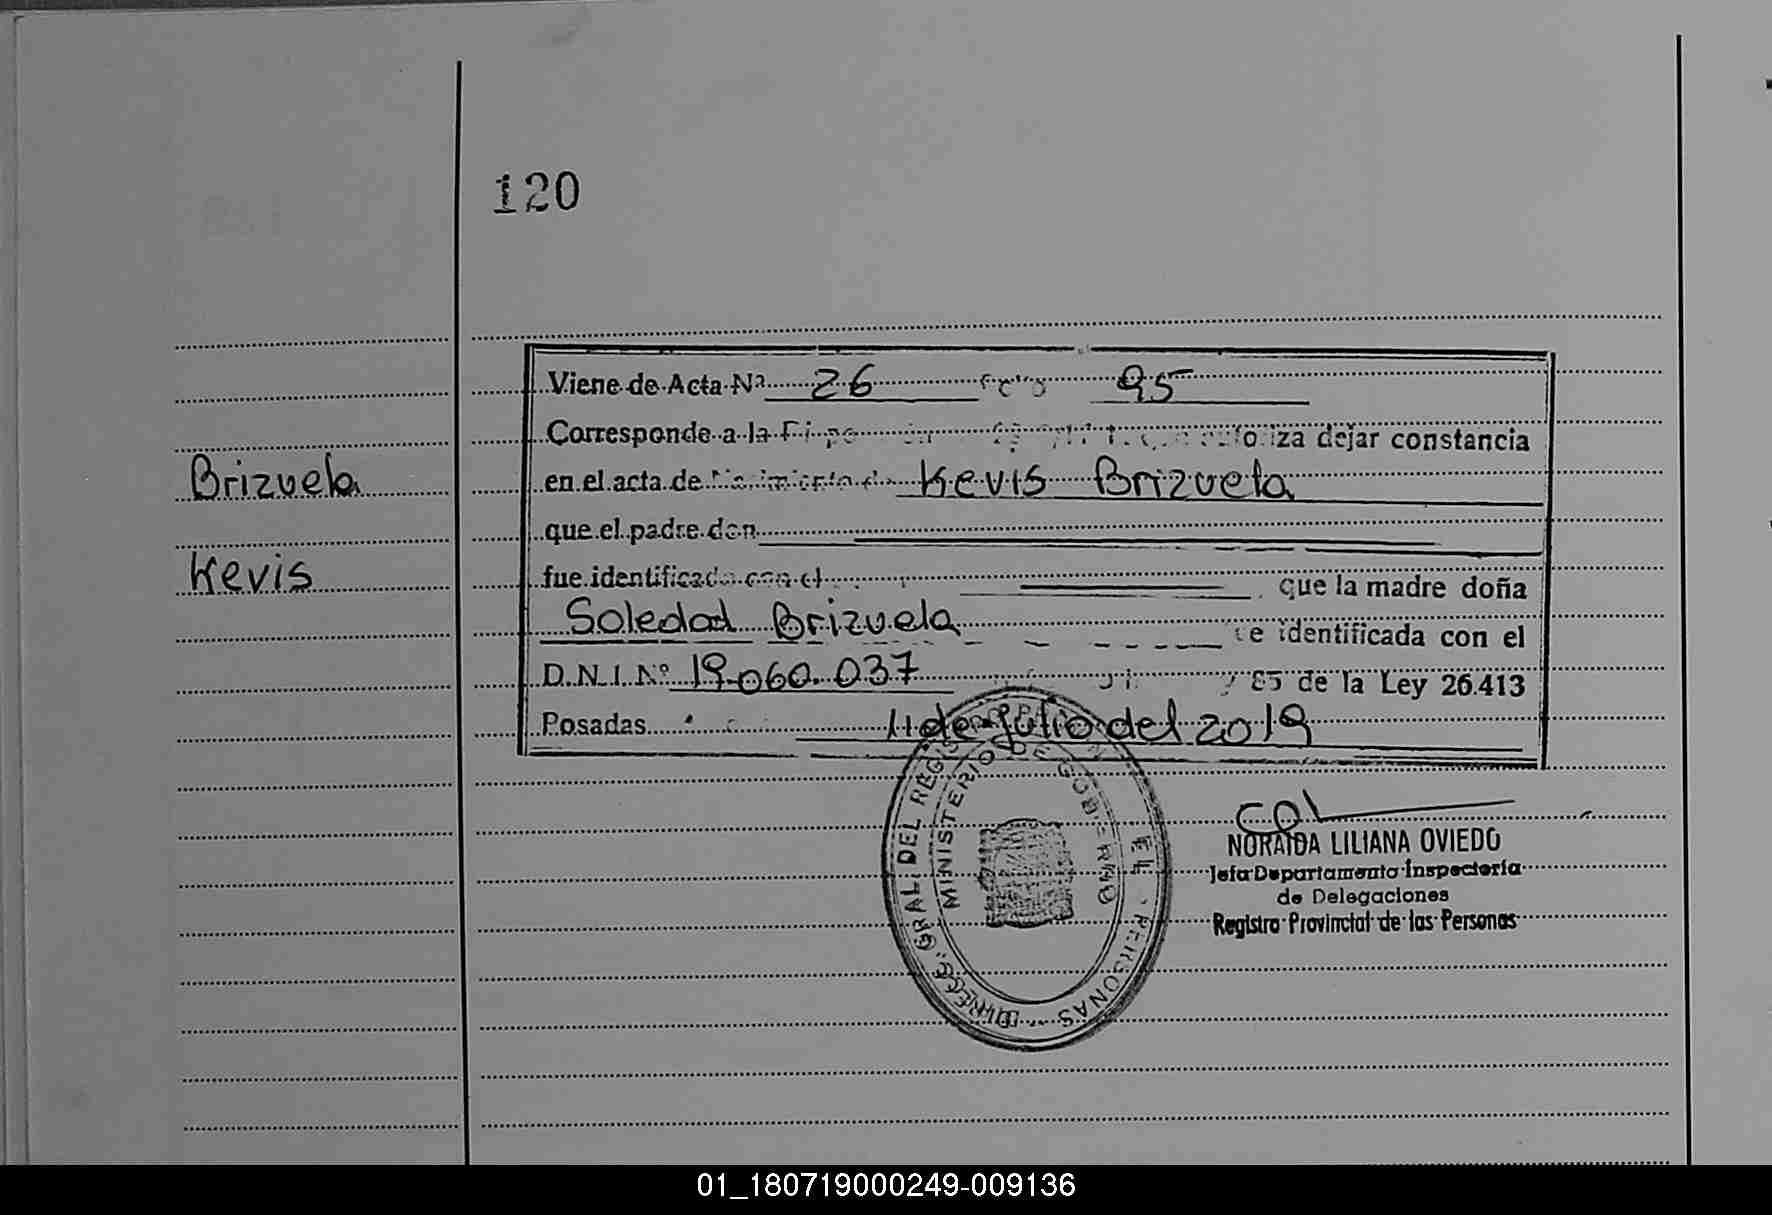 120
Viene de Acta Nº 26 Folio 95
Corresponde a la autoriza dejar constancia
Brizuela
en el acta de Nacimiento de Kevis Brizuela
que el padre don
Kevis
fue identificado con el que la madre doña
Soledad Brizuela fue identificada con el
D.N.I. Nº 19.060.037 y 85 de la Ley 26.413
Posadas 11 de Julio del 2019
NORAIDA LILIANA OVIEDO
Jefa Departamento Inspectoría
de Delegaciones
Registro Provincial de las Personas
GRAL. DEL PERSONAS
MINISTERIO DE GOBIERNO
01_180719000249-009136